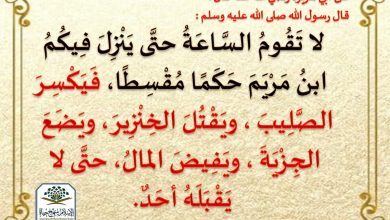 قال رسول الله صلى الله عليه وسلم :
لا تَقُومُ السَّاعَةُ حتَّى يَنْزِلَ فِيكُمُ
ابنُ مَرْيَمَ حَكَمًا مُقْسِطًا، فَيَكْسِرَ
الصَّلِيبَ ، ويَقْتُلَ الخِنْزِيرَ، ويَضَعَ
الجِزْيَةَ ، ويَفِيضَ المالُ، حتَّى لا
يَقْبَلَهُ أحَدٌ.